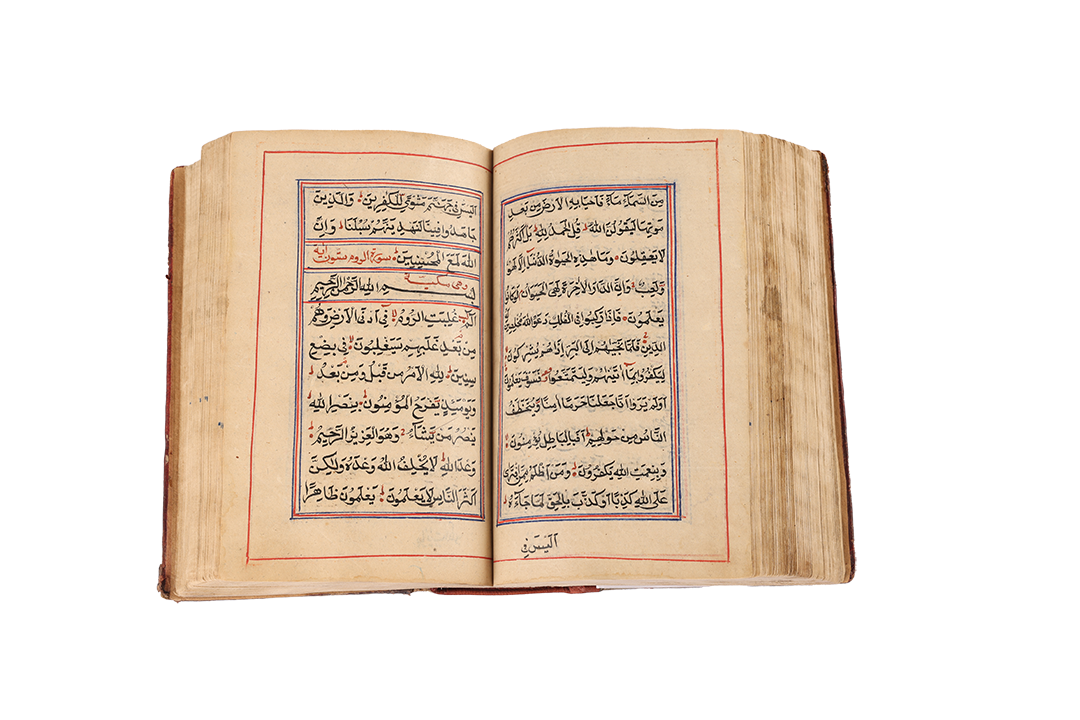 مِنَ السَّمَاءِ مَاءً فَاَحْيَا بِهِ الْاَرْضَ مِنْ بَعْدِ
مَوْتِهَا لَيَقُولُنَّ اللّٰهُ قُلِ الْحَمْدُ لِلّٰهِ بَلْ اَكْثَرُهُمْ
لَا يَعْقِلُونَ وَمَا هٰذِهِ الْحَيٰوةُ الدُّنْيَا اِلَّا لَهْوٌ
وَلَعِبٌ وَاِنَّ الدَّارَ الْاٰخِرَةَ لَهِيَ الْحَيَوَانُ لَوْ كَانُوا
يَعْلَمُونَ فَاِذَا رَكِبُوا فِي الْفُلْكِ دَعَوُا اللّٰهَ مُخْلِصِينَ لَهُ
الدِّينَ فَلَمَّا نَجّٰيهُمْ اِلَى الْبَرِّ اِذَا هُمْ يُشْرِكُونَ
لِيَكْفُرُوا بِمَا اٰتَيْنٰهُمْ وَلِيَتَمَتَّعُوا فَسَوْفَ يَعْلَمُونَ
اَوَلَمْ يَرَوْا اَنَّا جَعَلْنَا حَرَمًا اٰمِنًا وَيُتَخَطَّفُ
النَّاسُ مِنْ حَوْلِهِمْ اَفَبِالْبَاطِلِ يُؤْمِنُونَ
وَبِنِعْمَتِ اللّٰهِ يَكْفُرُونَ وَمَنْ اَظْلَمُ مِمَّنِ افْتَرٰى
عَلَى اللّٰهِ كَذِبًا اَوْ كَذَّبَ بِالْحَقِّ لَمَّا جَاءَهُ
اَلَيْسَ فِي
اَلَيْسَ فِي جَهَنَّمَ مَثْوًى لِلْكٰفِرِينَ وَالَّذِينَ
جَاهَدُوا فِينَا لَنَهْدِيَنَّهُمْ سُبُلَنَا وَاِنَّ
اللّٰهَ لَمَعَ الْمُحْسِنِينَ سورة الروم ستون اية
وهى مكية
بِسْمِ اللّٰهِ الرَّحْمٰنِ الرَّحِيمِ
الٓمٓ غُلِبَتِ الرُّومُ فِي اَدْنَى الْاَرْضِ وَهُمْ
مِنْ بَعْدِ غَلَبِهِمْ سَيَغْلِبُونَ فِي بِضْعِ
سِنِينَ لِلّٰهِ الْاَمْرُ مِنْ قَبْلُ وَمِنْ بَعْدُ
وَيَوْمَئِذٍ يَفْرَحُ الْمُؤْمِنُونَ بِنَصْرِ اللّٰهِ
يَنْصُرُ مَنْ يَشَاءُ وَهُوَ الْعَزِيزُ الرَّحِيمُ
وَعْدَ اللّٰهِ لَا يُخْلِفُ اللّٰهُ وَعْدَهُ وَلٰكِنَّ
اَكْثَرَ النَّاسِ لَا يَعْلَمُونَ يَعْلَمُونَ ظَاهِرًا